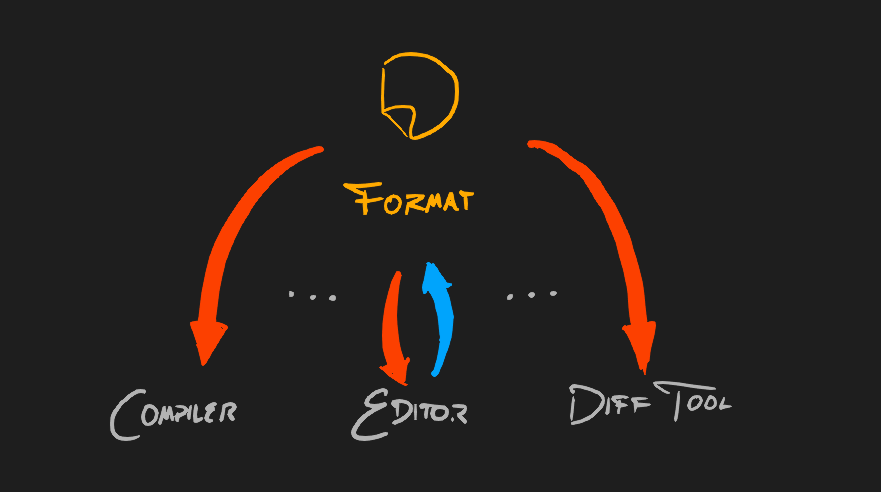 FORMAT
... ...
COMPILER EDITOR DIFF TOOL